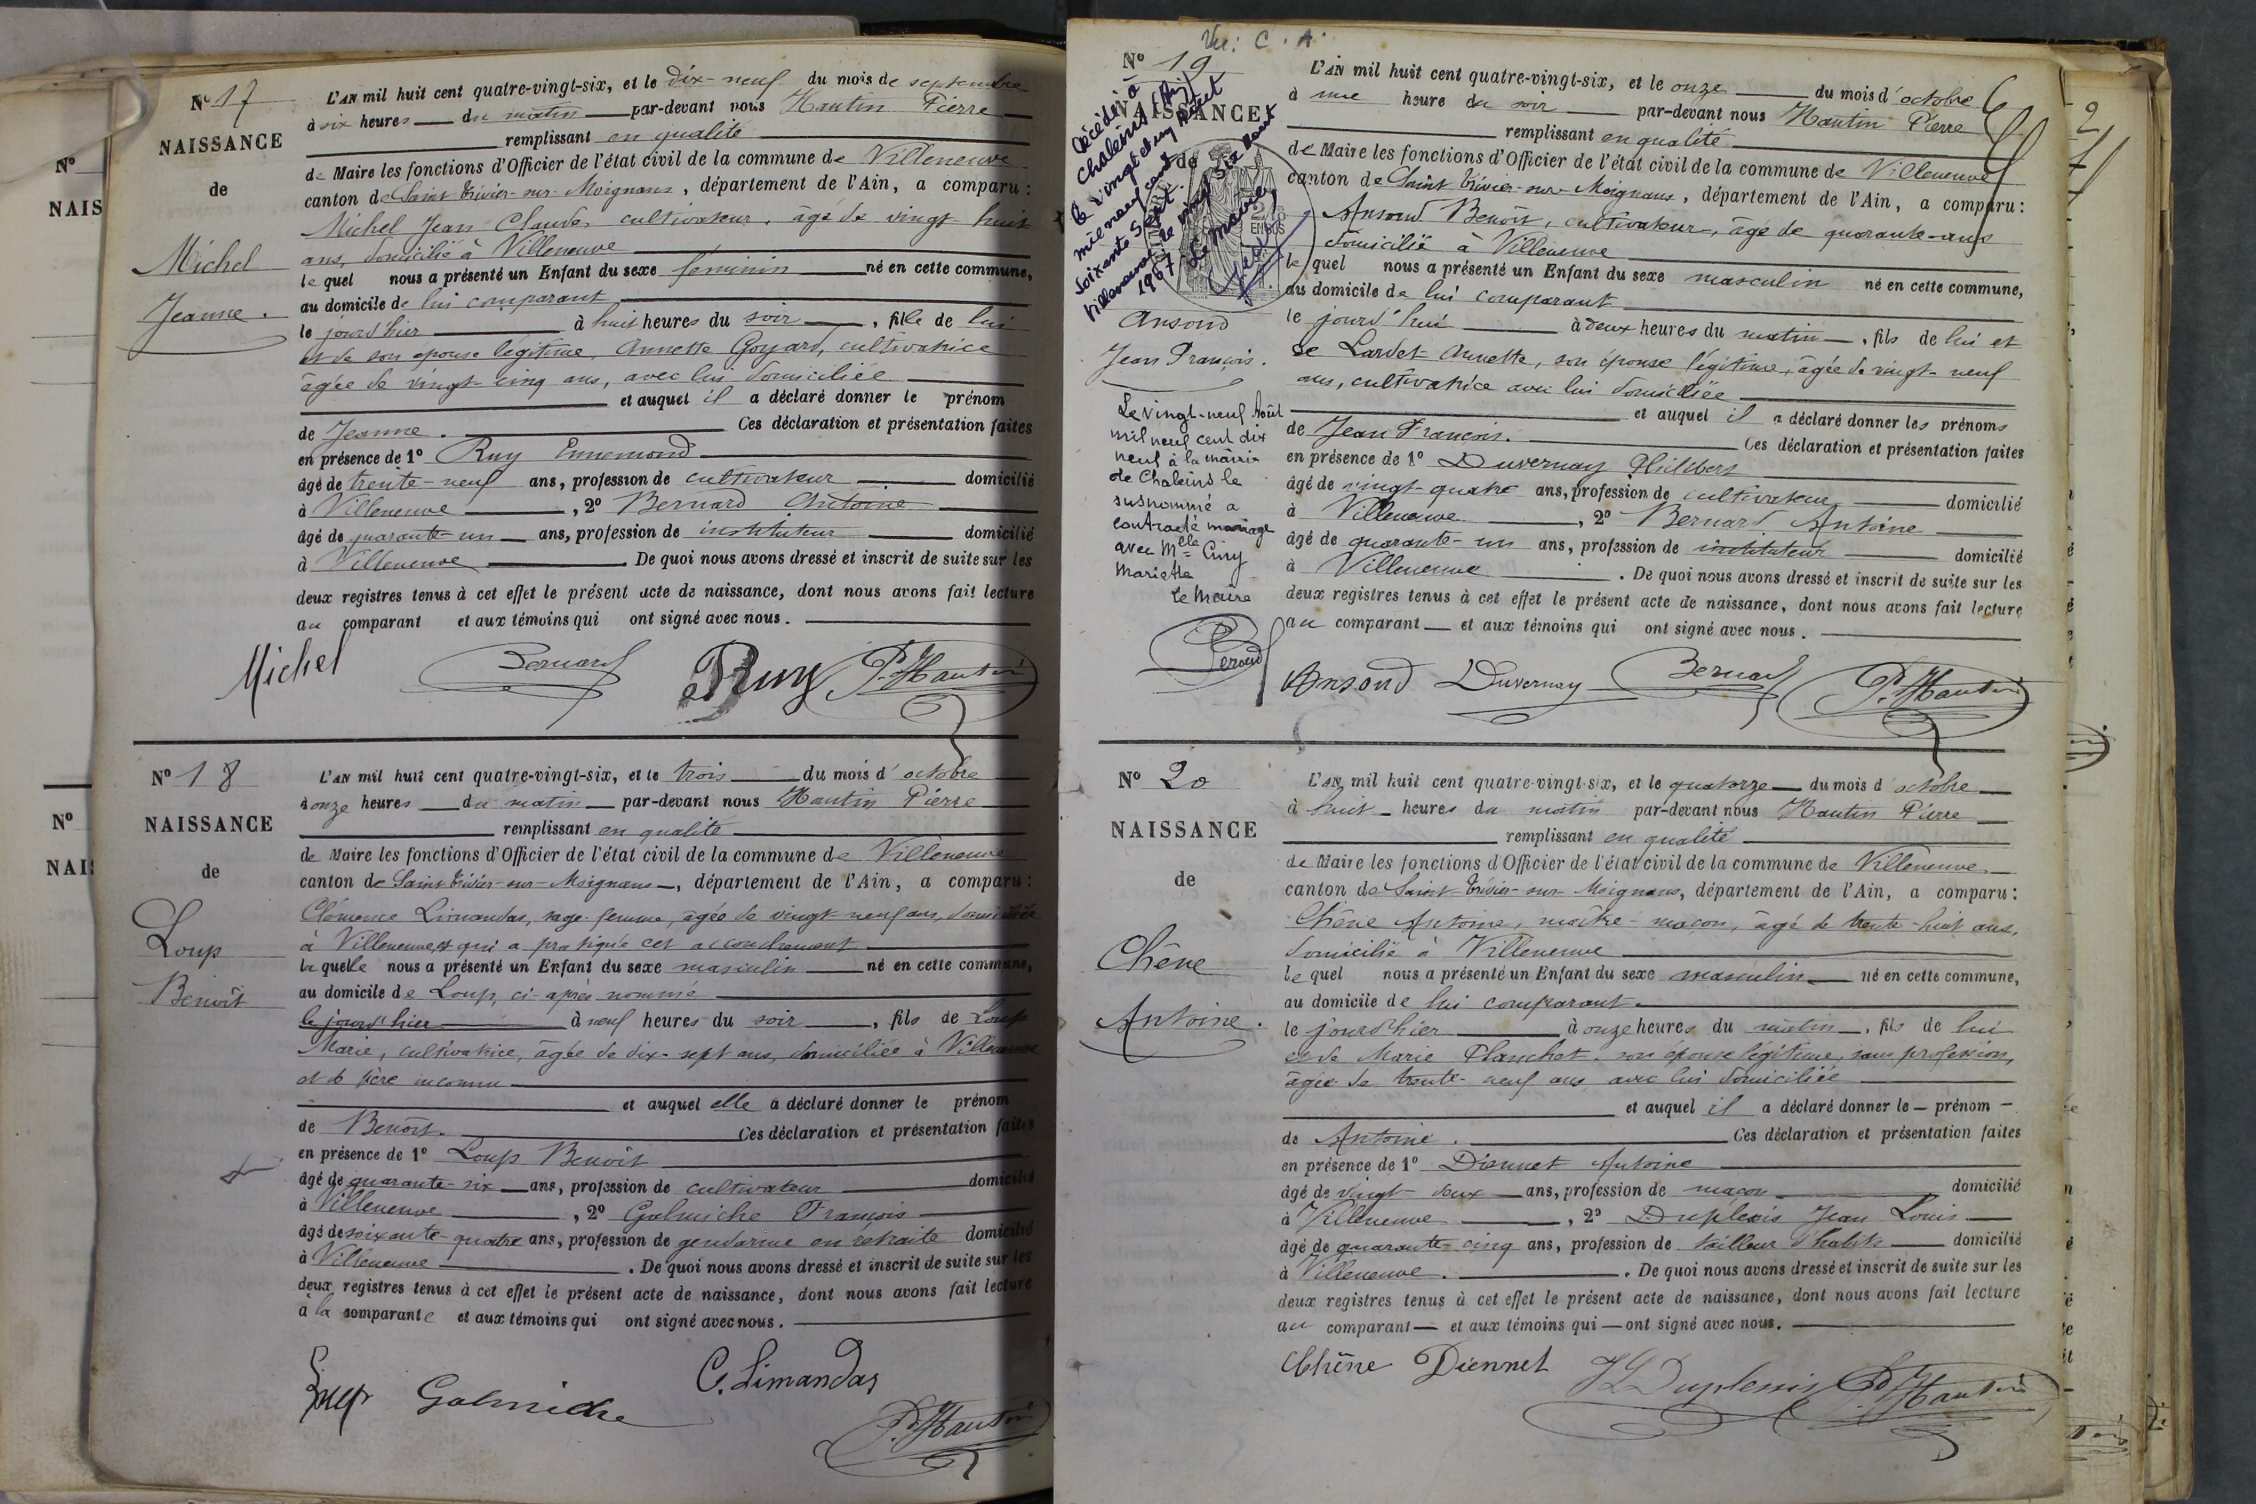 Nº 17
NAISSANCE
de
Michel
Jeanne.
L'AN mil huit cent quatre-vingt-six, et le dix-neuf du mois de septembre
à six heures du matin par-devant nous Hautin Pierre
remplissant en qualité
de Maire les fonctions d'Officier de l'état civil de la commune de Villeneuve
canton de Saint Trivier-sur-Moignans, département de l'Ain, a comparu:
Michel Jean Claude, cultivateur, âgé de vingt-huit
ans, domicilié à Villeneuve
lequel nous a présenté un Enfant du sexe féminin né en cette commune,
au domicile de lui comparant
le jourd'hier à huit heures du soir, fille de lui
et de son épouse légitime, Annette Goyard, cultivatrice
âgée de vingt-cinq ans, avec lui domiciliée
et auquel il a déclaré donner le prénom
de Jeanne. Ces déclaration et présentation faites
en présence de 1º Ruy Ennemond
âgé de trente-neuf ans, profession de cultivateur domicilié
à Villeneuve, 2º Bernard Antoine
âgé de quarante-un ans, profession de instituteur domicilié
à Villeneuve. De quoi nous avons dressé et inscrit de suite sur les
deux registres tenus à cet effet le présent acte de naissance, dont nous avons fait lecture
au comparant et aux témoins qui ont signé avec nous.
Michel Bernard Ruy P. Hautin
Nº 18
NAISSANCE
de
Loup
Benoît
L'AN mil huit cent quatre-vingt-six, et le trois du mois d'octobre
à onze heures du matin par-devant nous Hautin Pierre
remplissant en qualité
de Maire les fonctions d'Officier de l'état civil de la commune de Villeneuve
canton de Saint Trivier-sur-Moignans, département de l'Ain, a comparu:
Clémence Limandas, sage-femme, âgée de vingt-neuf ans, domiciliée
à Villeneuve, et qui a pratiqué cet accouchement
laquelle nous a présenté un Enfant du sexe masculin né en cette commune,
au domicile de Loup, ci-après nommé
le jourd'hier à neuf heures du soir, fils de Loup
Marie, cultivatrice, âgée de dix-sept ans, domiciliée à Villeneuve
et de père inconnu
et auquel elle a déclaré donner le prénom
de Benoît. Ces déclaration et présentation faites
en présence de 1º Loup Benoît
âgé de quarante-six ans, profession de cultivateur domicilié
à Villeneuve, 2º Galmiche François
âgé de soixante-quatre ans, profession de gendarme en retraite domicilié
à Villeneuve. De quoi nous avons dressé et inscrit de suite sur les
deux registres tenus à cet effet le présent acte de naissance, dont nous avons fait lecture
à la comparante et aux témoins qui ont signé avec nous.
Loup Galmiche C. Limandas
P. Hautin
Vu: C. A.
Nº 19
NAISSANCE
de
Décédé à
Chaleins (Ain)
le vingt et un Août
mil neuf cent
soixante sept.
Villeneuve le vingt six Août
1967 Le Maire
Ansond
Jean François.
Le vingt-neuf Août
mil neuf cent dix
neuf à la mairie
de Chaleins le
susnommé a
contracté mariage
avec Mlle Ciny
Mariette
Le Maire
L'AN mil huit cent quatre-vingt-six, et le onze du mois d'octobre
à une heure du soir par-devant nous Hautin Pierre
remplissant en qualité
de Maire les fonctions d'Officier de l'état civil de la commune de Villeneuve
canton de Saint Trivier-sur-Moignans, département de l'Ain, a comparu:
Ansond Benoît, cultivateur, âgé de quarante-ans
domicilié à Villeneuve
lequel nous a présenté un Enfant du sexe masculin né en cette commune,
au domicile de lui comparant
le jourd'hui à deux heures du matin, fils de lui et
de Lardet Annette, son épouse légitime, âgée de vingt-neuf
ans, cultivatrice avec lui domiciliée
et auquel il a déclaré donner les prénoms
de Jean François. Ces déclaration et présentation faites
en présence de 1º Duvernay Philibert
âgé de vingt-quatre ans, profession de cultivateur domicilié
à Villeneuve, 2º Bernard Antoine
âgé de quarante-un ans, profession de instituteur domicilié
à Villeneuve. De quoi nous avons dressé et inscrit de suite sur les
deux registres tenus à cet effet le présent acte de naissance, dont nous avons fait lecture
au comparant et aux témoins qui ont signé avec nous.
Peroud Ansond Duvernay Bernard P. Hautin
Nº 20
NAISSANCE
de
Chêne
Antoine.
L'AN mil huit cent quatre-vingt-six, et le quatorze du mois d'octobre
à huit heures du matin par-devant nous Hautin Pierre
remplissant en qualité
de Maire les fonctions d'Officier de l'état civil de la commune de Villeneuve
canton de Saint Trivier-sur-Moignans, département de l'Ain, a comparu:
Chêne Antoine, maître-maçon, âgé de trente-huit ans,
domicilié à Villeneuve
lequel nous a présenté un Enfant du sexe masculin né en cette commune,
au domicile de lui comparant.
le jourd'hier à onze heures du matin, fils de lui
et de Marie Planchet, son épouse légitime, sans profession,
âgée de trente-neuf ans avec lui domiciliée
et auquel il a déclaré donner le prénom
de Antoine. Ces déclaration et présentation faites
en présence de 1º Diennet Antoine
âgé de vingt-deux ans, profession de maçon domicilié
à Villeneuve, 2º Duplexis Jean Louis
âgé de quarante-cinq ans, profession de tailleur d'habits domicilié
à Villeneuve. De quoi nous avons dressé et inscrit de suite sur les
deux registres tenus à cet effet le présent acte de naissance, dont nous avons fait lecture
au comparant et aux témoins qui ont signé avec nous.
Chêne Diennet JL Duplessis P. Hautin